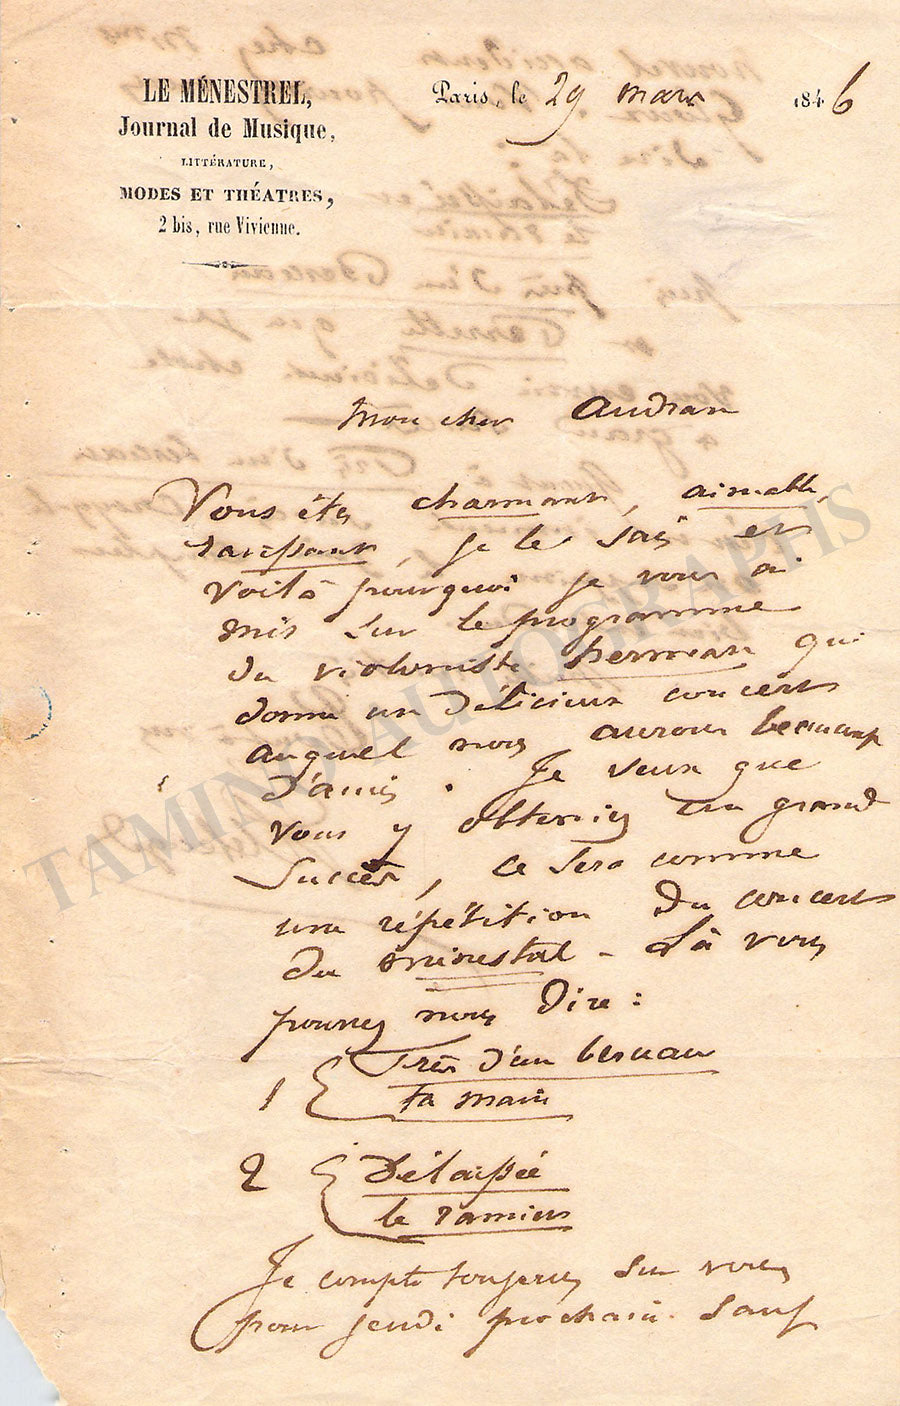 LE MÉNESTREL,
Journal de Musique,
LITTÉRATURE,
MODES ET THÉATRES,
2 bis, rue Vivienne.
Paris, le 29 mars 1846
Mon cher Audran
Vous êtes charmant, aimable,
ravissant, je le sais et
voilà pourquoi je vous ai
mis sur le programme
du violoniste herman qui
donne un délicieux concert
auquel nous aurons beaucoup
d'amis. Je veux que
vous y obteniez un grand
succès, ce sera comme
une répétition du concert
du ménestrel - Là vous
pourrez nous dire :
1 { Près d'un berceau
ta main
2 { Délaissée
le ramier
Je compte toujours sur vous
pour jeudi prochain. Sauf
TAMINO AUTOGRAPHS